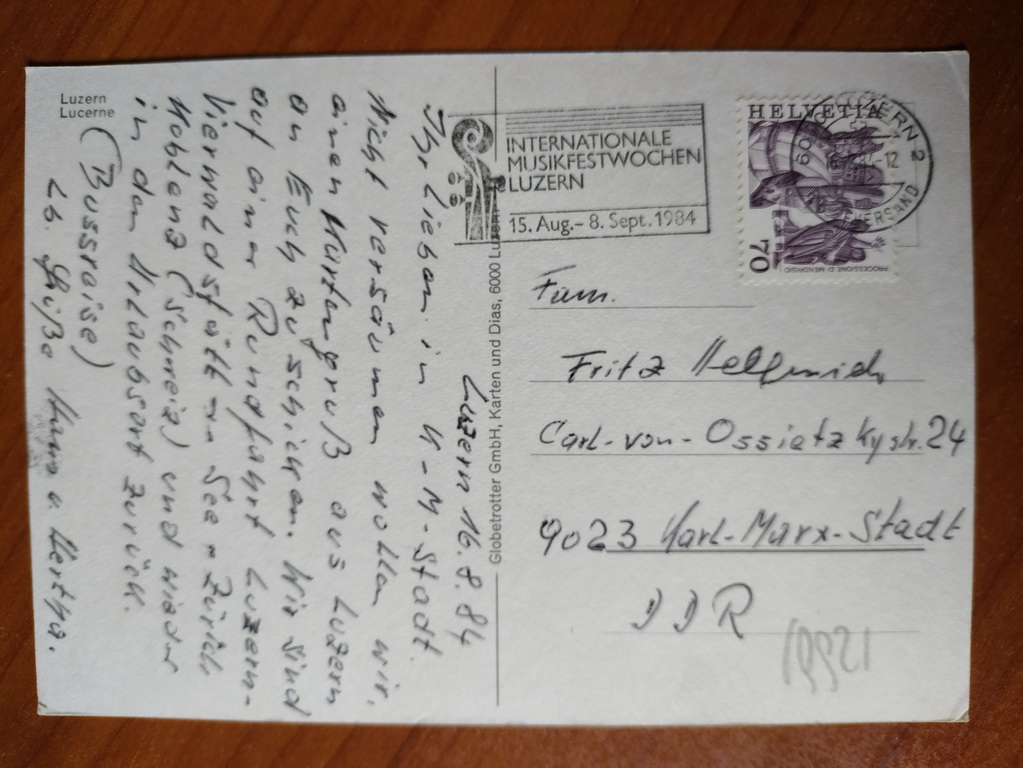 Luzern
Lucerne
Luzern 16.8.84
Ihr Lieben in K-M-Stadt.
Nicht versäumen wollen wir,
einen Kartengruß aus Luzern
an Euch zu schicken. Wir sind
auf einer Rundfahrt Luzern-
Vierwaldstätt - See - Zürich
Koblenz (Schweiz) und wieder
in den Urlaubsort zurück.
(Bussreise)
Lb. Grüße Hans u. Hertha.
Globetrotter GmbH, Karten und Dias, 6000 Luzern
INTERNATIONALE
MUSIKFESTWOCHEN
LUZERN
15. Aug. - 8. Sept. 1984
HELVETIA
70
PROCESSIONE DI MENDRISIO
LUZERN 2
-12
VERSAND
Fam.
Fritz Hellmich
Carl-von-Ossietzkystr. 24
9023 Karl-Marx-Stadt
DDR